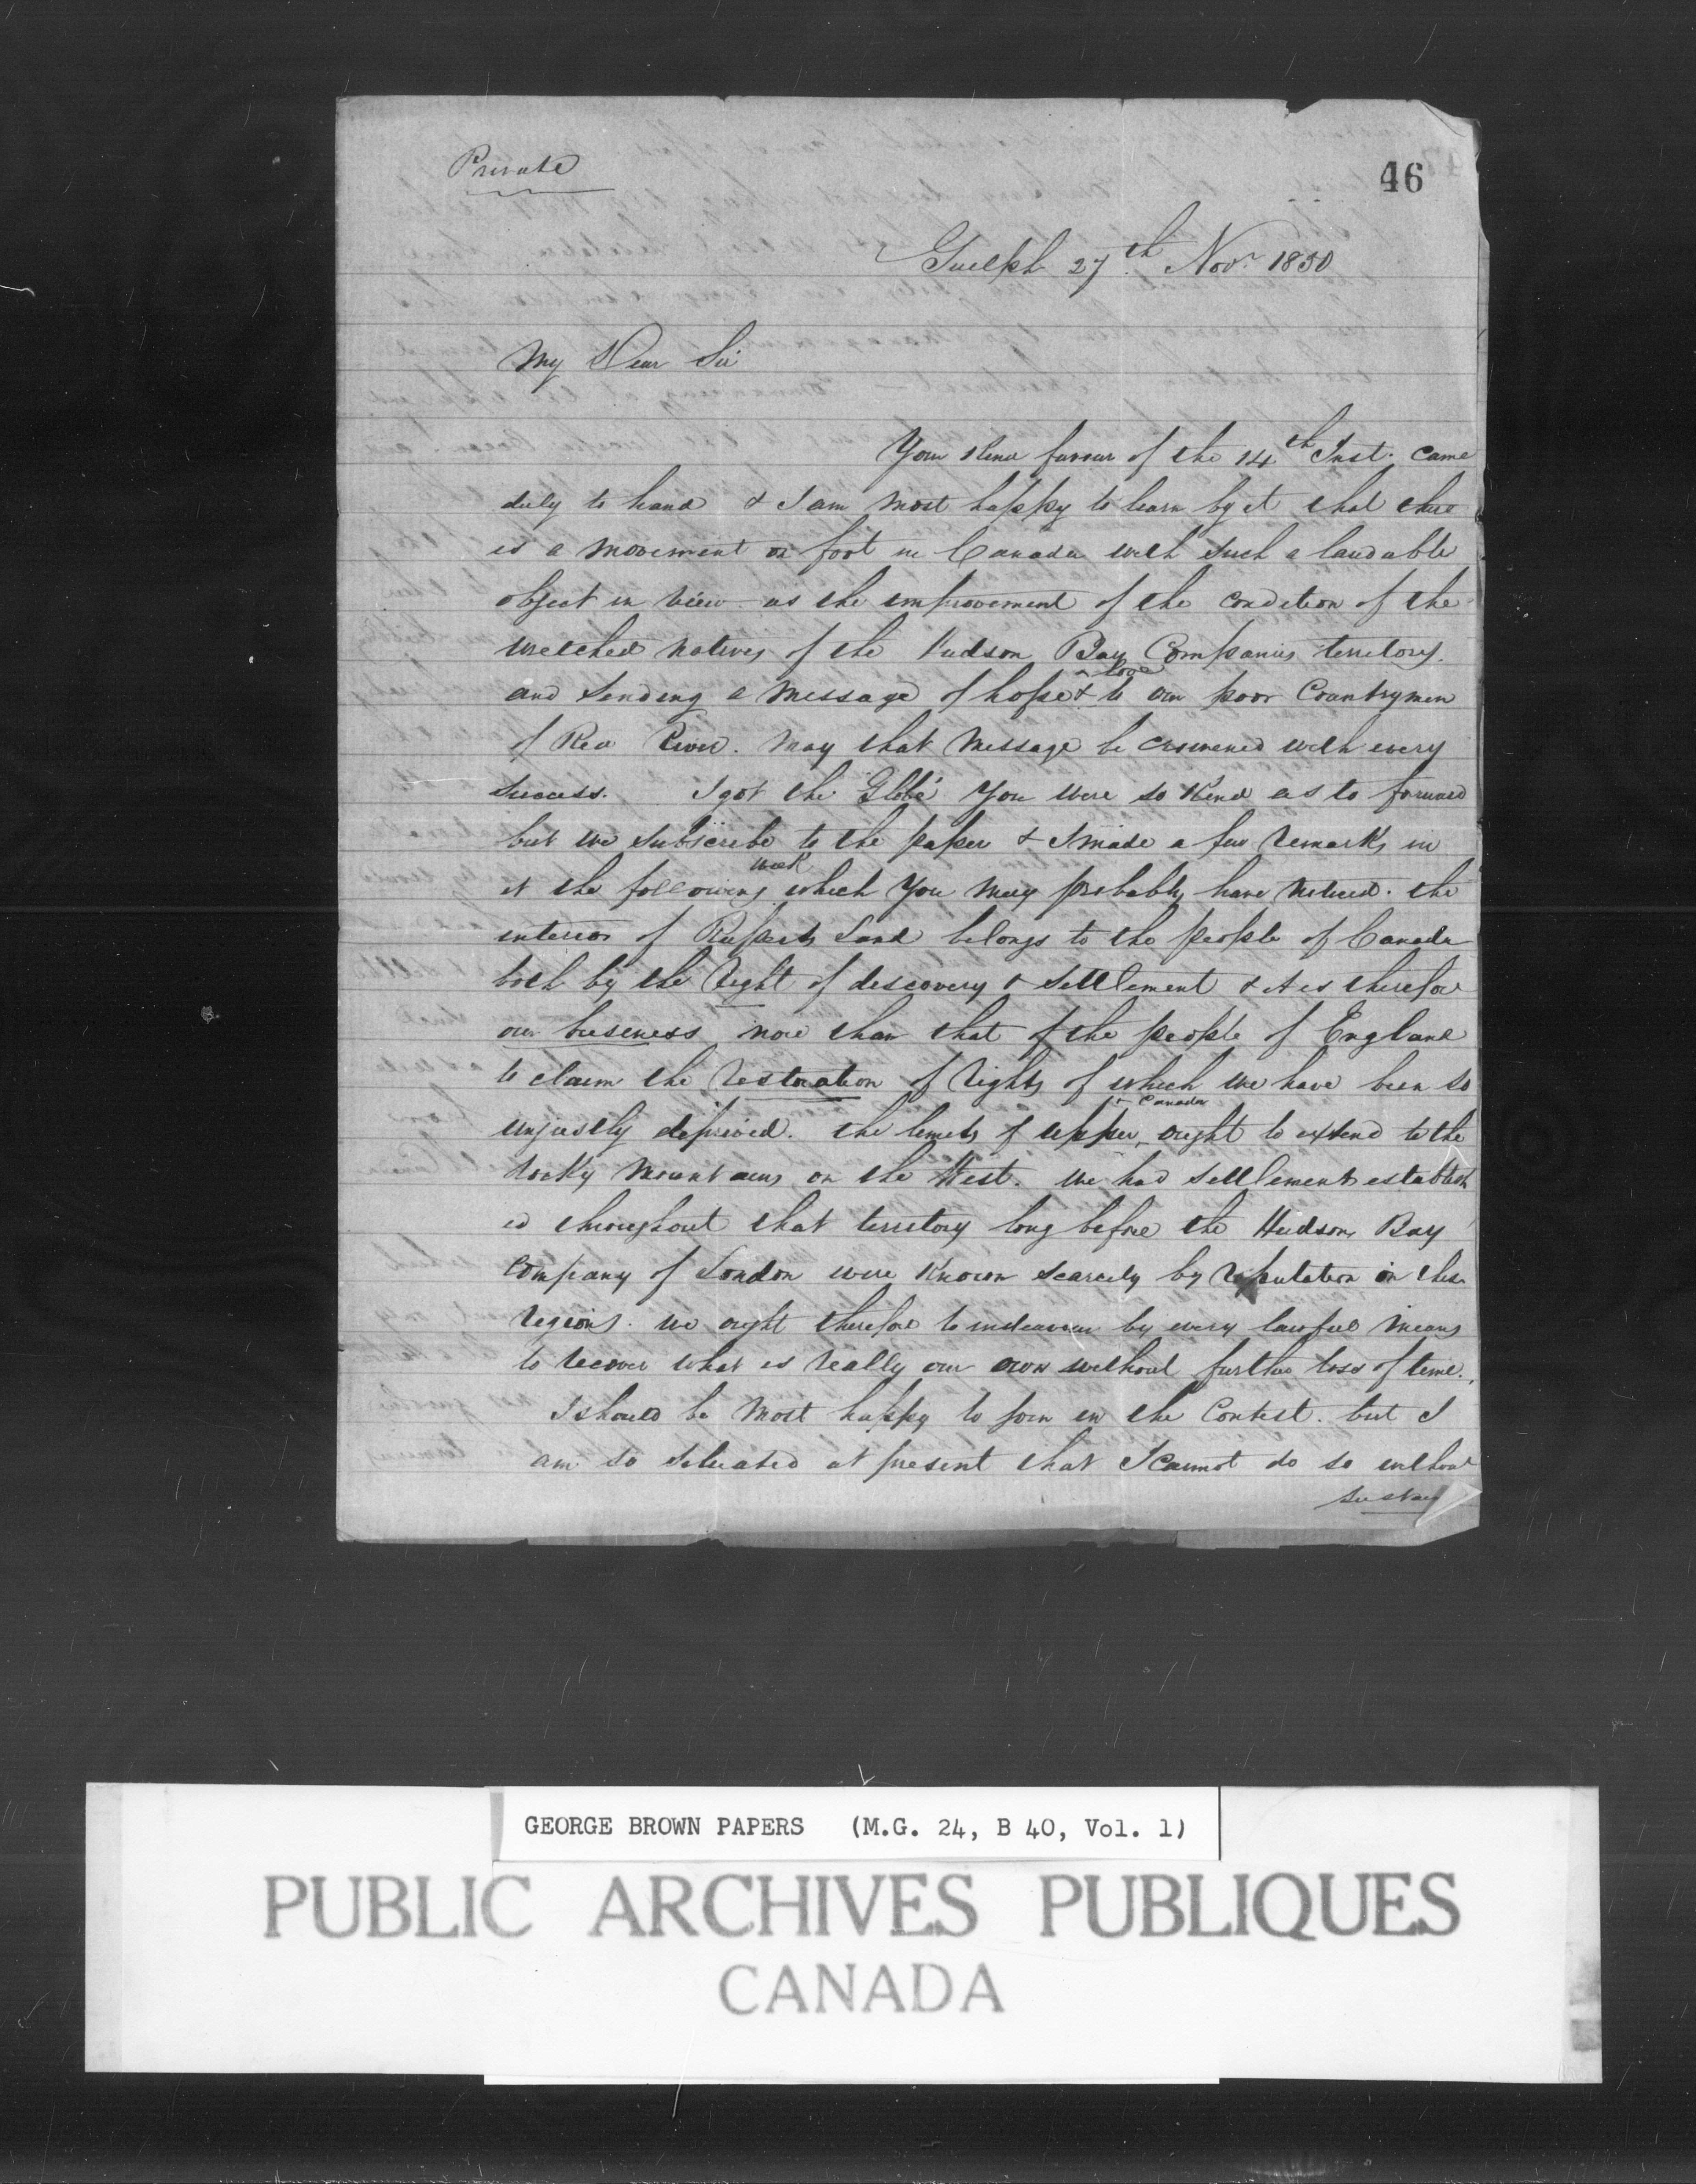 Private
46
Guelph 27th Novr 1850
My Dear Sir
Your kind favour of the 14th Inst. came
duly to hand & I am most happy to learn by it that there
is a movement on foot in Canada with such a laudable
object in view as the improvement of the condition of the
wretched natives of the Hudson Bay Companies territory.
and sending a message of hope & love to our poor Countrymen
of Red River. May that message be crowned with every
success. I got the Globe You were so kind as to forward
but we subscribe to the paper & I made a few remarks in
it the following week which You may probably have noticed. the
interior of Ruperts Land belongs to the people of Canada
both by the right of discovery & settlement & it is therefore
our business more than that of the people of England
to claim the restoration of rights of which we have been so
unjustly deprived. the limits of upper Canada ought to extend to the
rocky Mountains on the West. we had settlements establish
ed throughout that territory long before the Hudsons Bay
Company of London were known scarcely by reputation in these
regions. we ought therefore to endeavour by every lawful means
to recover what is really our own without further loss of time.
I should be most happy to join in the Contest. but I
am so situated at present that I cannot do so without
GEORGE BROWN PAPERS (M.G. 24, B 40, Vol. 1)
PUBLIC ARCHIVES PUBLIQUES
CANADA